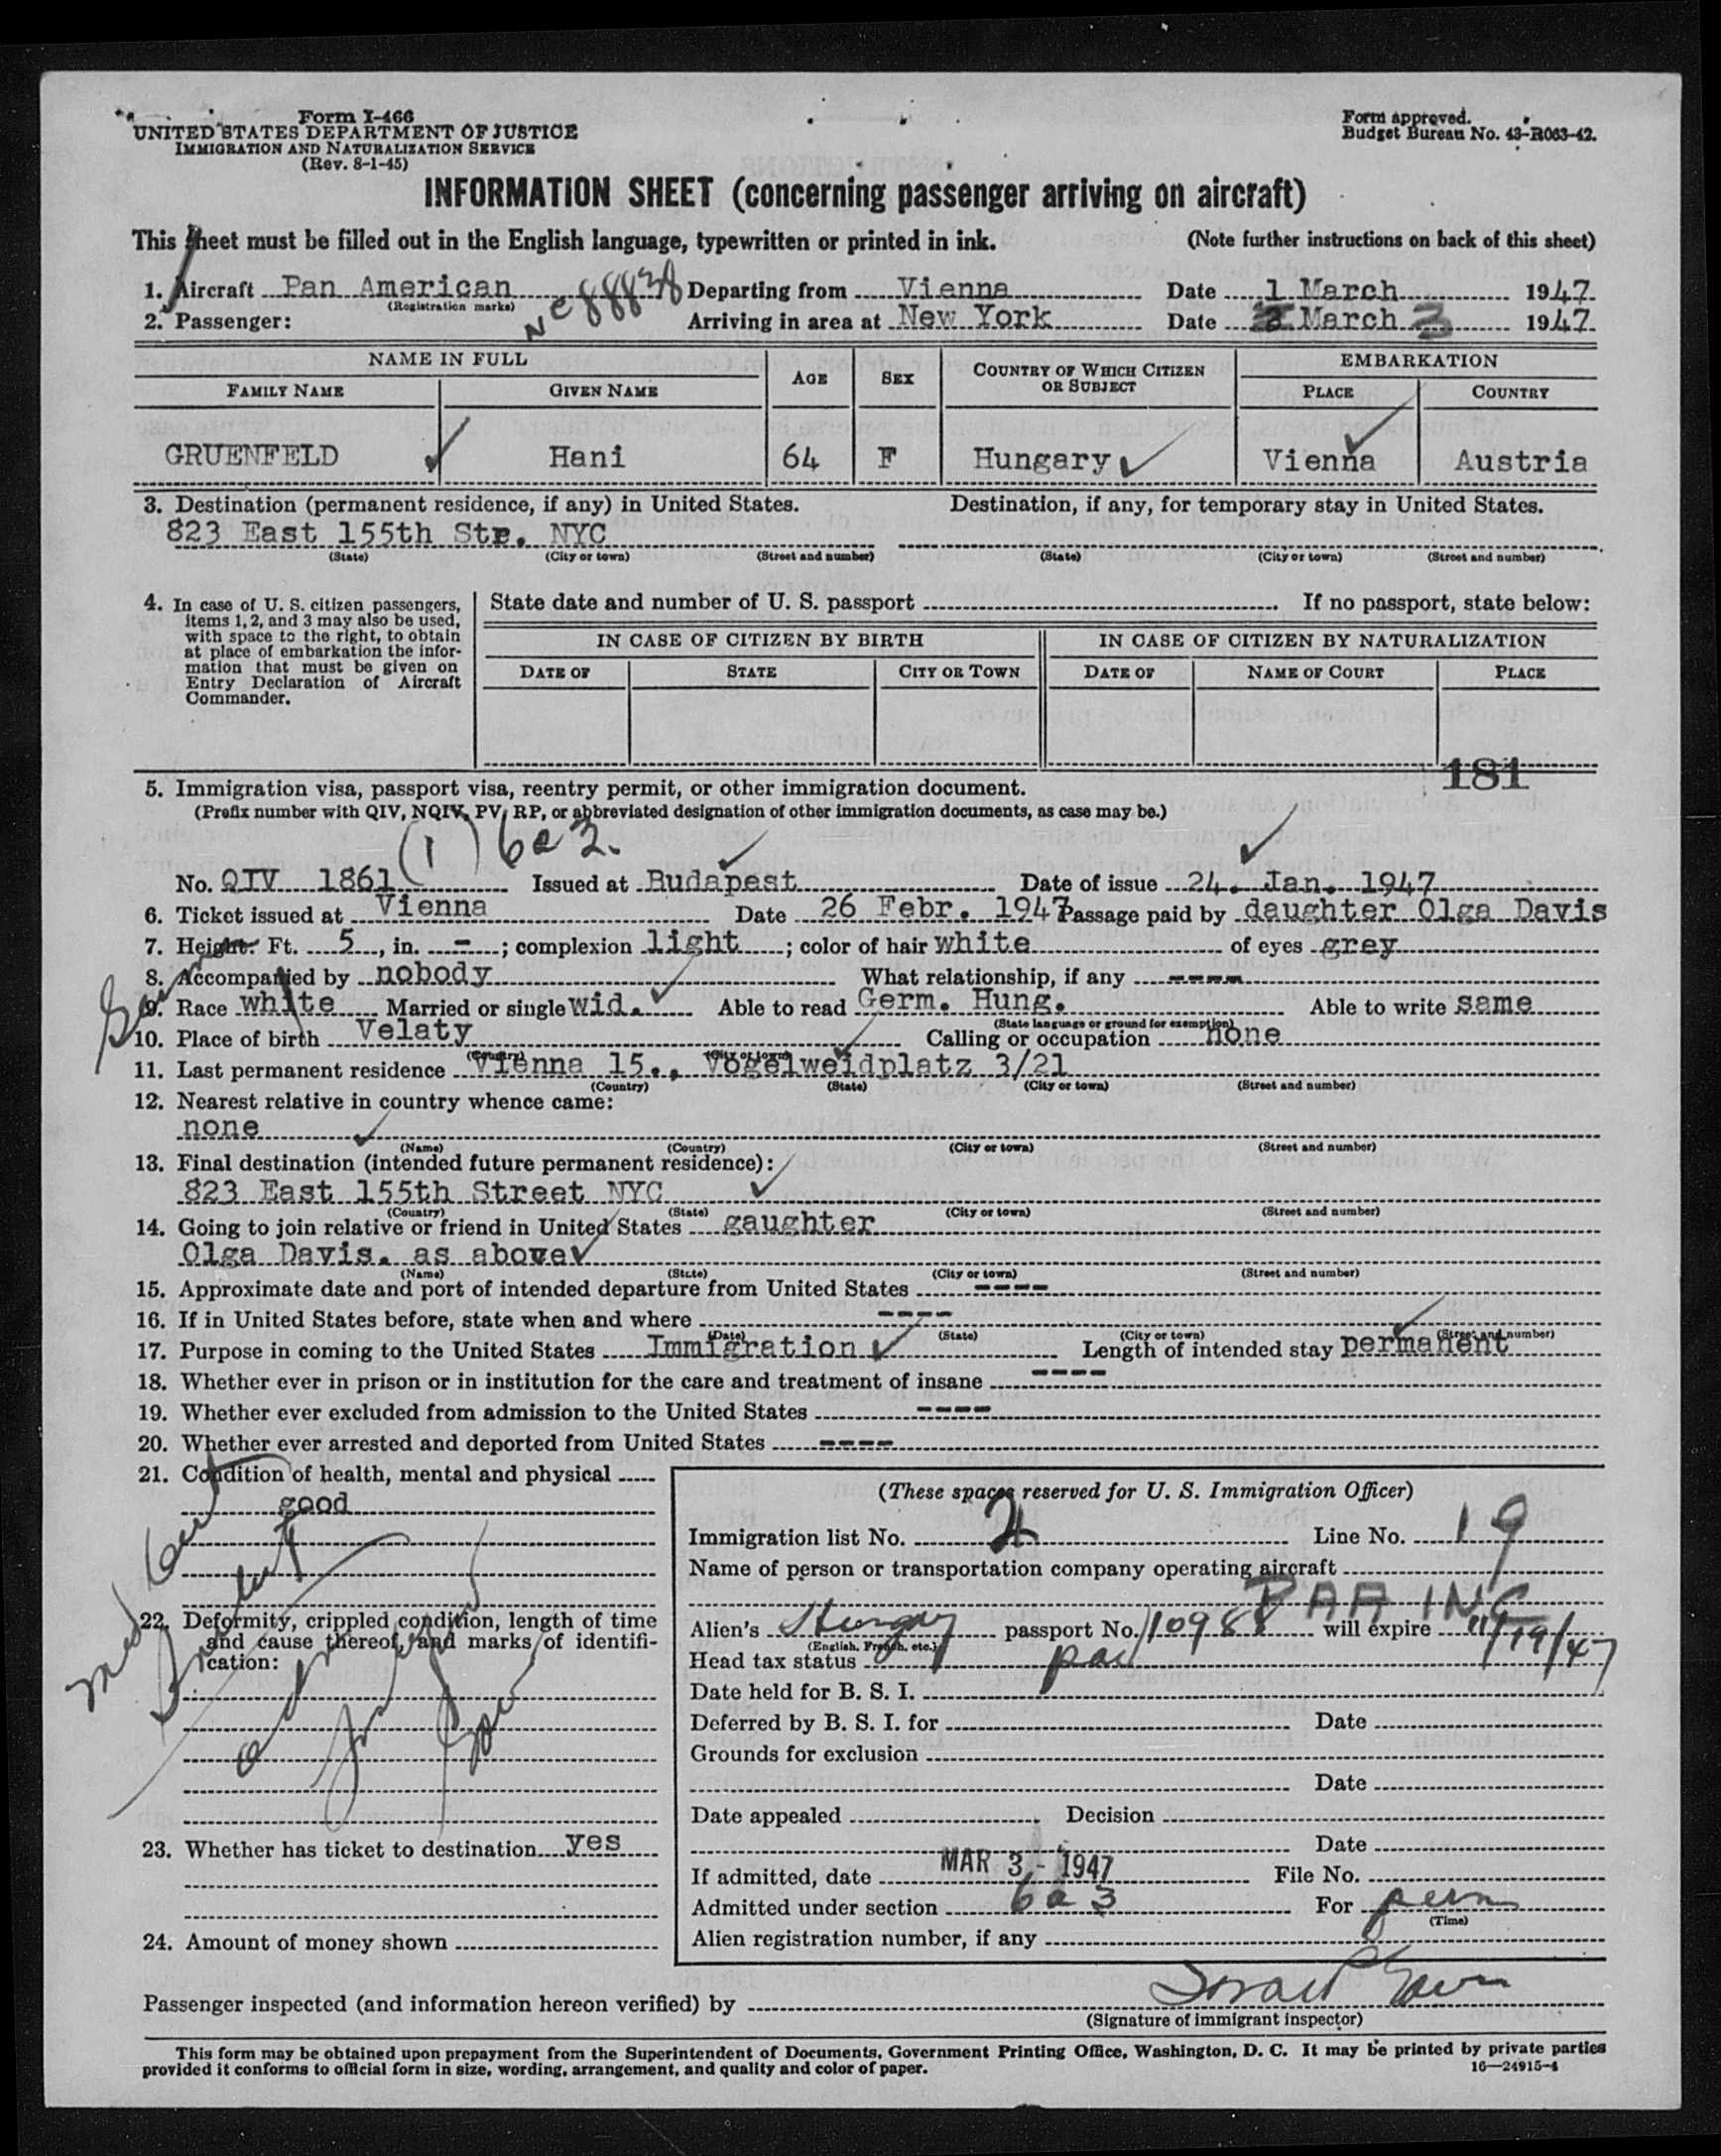 Form I-466
UNITED STATES DEPARTMENT OF JUSTICE
IMMIGRATION AND NATURALIZATION SERVICE
(Rev. 8-1-45)
Form approved.
Budget Bureau No. 43-R063-42.
INFORMATION SHEET (concerning passenger arriving on aircraft)
This sheet must be filled out in the English language, typewritten or printed in ink. (Note further instructions on back of this sheet)
1. Aircraft Pan American Departing from Vienna Date 1 March 1947
(Registration marks)
2. Passenger: Arriving in area at New York Date March 3 1947
NAME IN FULL AGE SEX COUNTRY OF WHICH CITIZEN OR SUBJECT EMBARKATION
FAMILY NAME GIVEN NAME PLACE COUNTRY
GRUENFELD Hani 64 F Hungary Vienna Austria
3. Destination (permanent residence, if any) in United States. Destination, if any, for temporary stay in United States.
823 East 155th Str. NYC
(State) (City or town) (Street and number) (State) (City or town) (Street and number)
4. In case of U. S. citizen passengers, items 1, 2, and 3 may also be used, with space to the right, to obtain at place of embarkation the information that must be given on Entry Declaration of Aircraft Commander.
State date and number of U. S. passport If no passport, state below:
IN CASE OF CITIZEN BY BIRTH IN CASE OF CITIZEN BY NATURALIZATION
DATE OF STATE CITY OR TOWN DATE OF NAME OF COURT PLACE
181
5. Immigration visa, passport visa, reentry permit, or other immigration document.
(Prefix number with QIV, NQIV, PV, RP, or abbreviated designation of other immigration documents, as case may be.)
(1) 6a3.
No. QIV 1861 Issued at Budapest Date of issue 24. Jan. 1947
6. Ticket issued at Vienna Date 26 Febr. 1947 Passage paid by daughter Olga Davis
7. Height: Ft. 5, in. -; complexion light; color of hair white of eyes grey
8. Accompanied by nobody What relationship, if any ----
9. Race white Married or single wid. Able to read Germ. Hung. Able to write same
(State language or ground for exemption)
10. Place of birth Velaty Calling or occupation none
(Country) (City or town)
11. Last permanent residence Vienna 15., Vogelweidplatz 3/21
(Country) (State) (City or town) (Street and number)
12. Nearest relative in country whence came:
none
(Name) (Country) (City or town) (Street and number)
13. Final destination (intended future permanent residence):
823 East 155th Street NYC
(Country) (State) (City or town) (Street and number)
14. Going to join relative or friend in United States gaughter
Olga Davis. as above
(Name) (State) (City or town) (Street and number)
15. Approximate date and port of intended departure from United States ----
16. If in United States before, state when and where ----
(Date) (State) (City or town) (Street and number)
17. Purpose in coming to the United States Immigration Length of intended stay permanent
18. Whether ever in prison or in institution for the care and treatment of insane ----
19. Whether ever excluded from admission to the United States ----
20. Whether ever arrested and deported from United States ----
21. Condition of health, mental and physical
good
22. Deformity, crippled condition, length of time and cause thereof, and marks of identification:
23. Whether has ticket to destination yes
24. Amount of money shown
(These spaces reserved for U. S. Immigration Officer)
Immigration list No. 4 Line No. 19
Name of person or transportation company operating aircraft
PAA INC
Alien's Hungary passport No. 110988 will expire 11/19/47
(English, French, etc.)
Head tax status
Date held for B. S. I.
Deferred by B. S. I. for Date
Grounds for exclusion
Date
Date appealed Decision
Date
If admitted, date MAR 3 - 1947 File No.
Admitted under section 6a3 For perm
(Time)
Alien registration number, if any
Passenger inspected (and information hereon verified) by
(Signature of immigrant inspector)
This form may be obtained upon prepayment from the Superintendent of Documents, Government Printing Office, Washington, D. C. It may be printed by private parties
provided it conforms to official form in size, wording, arrangement, and quality and color of paper. 16—24915-4